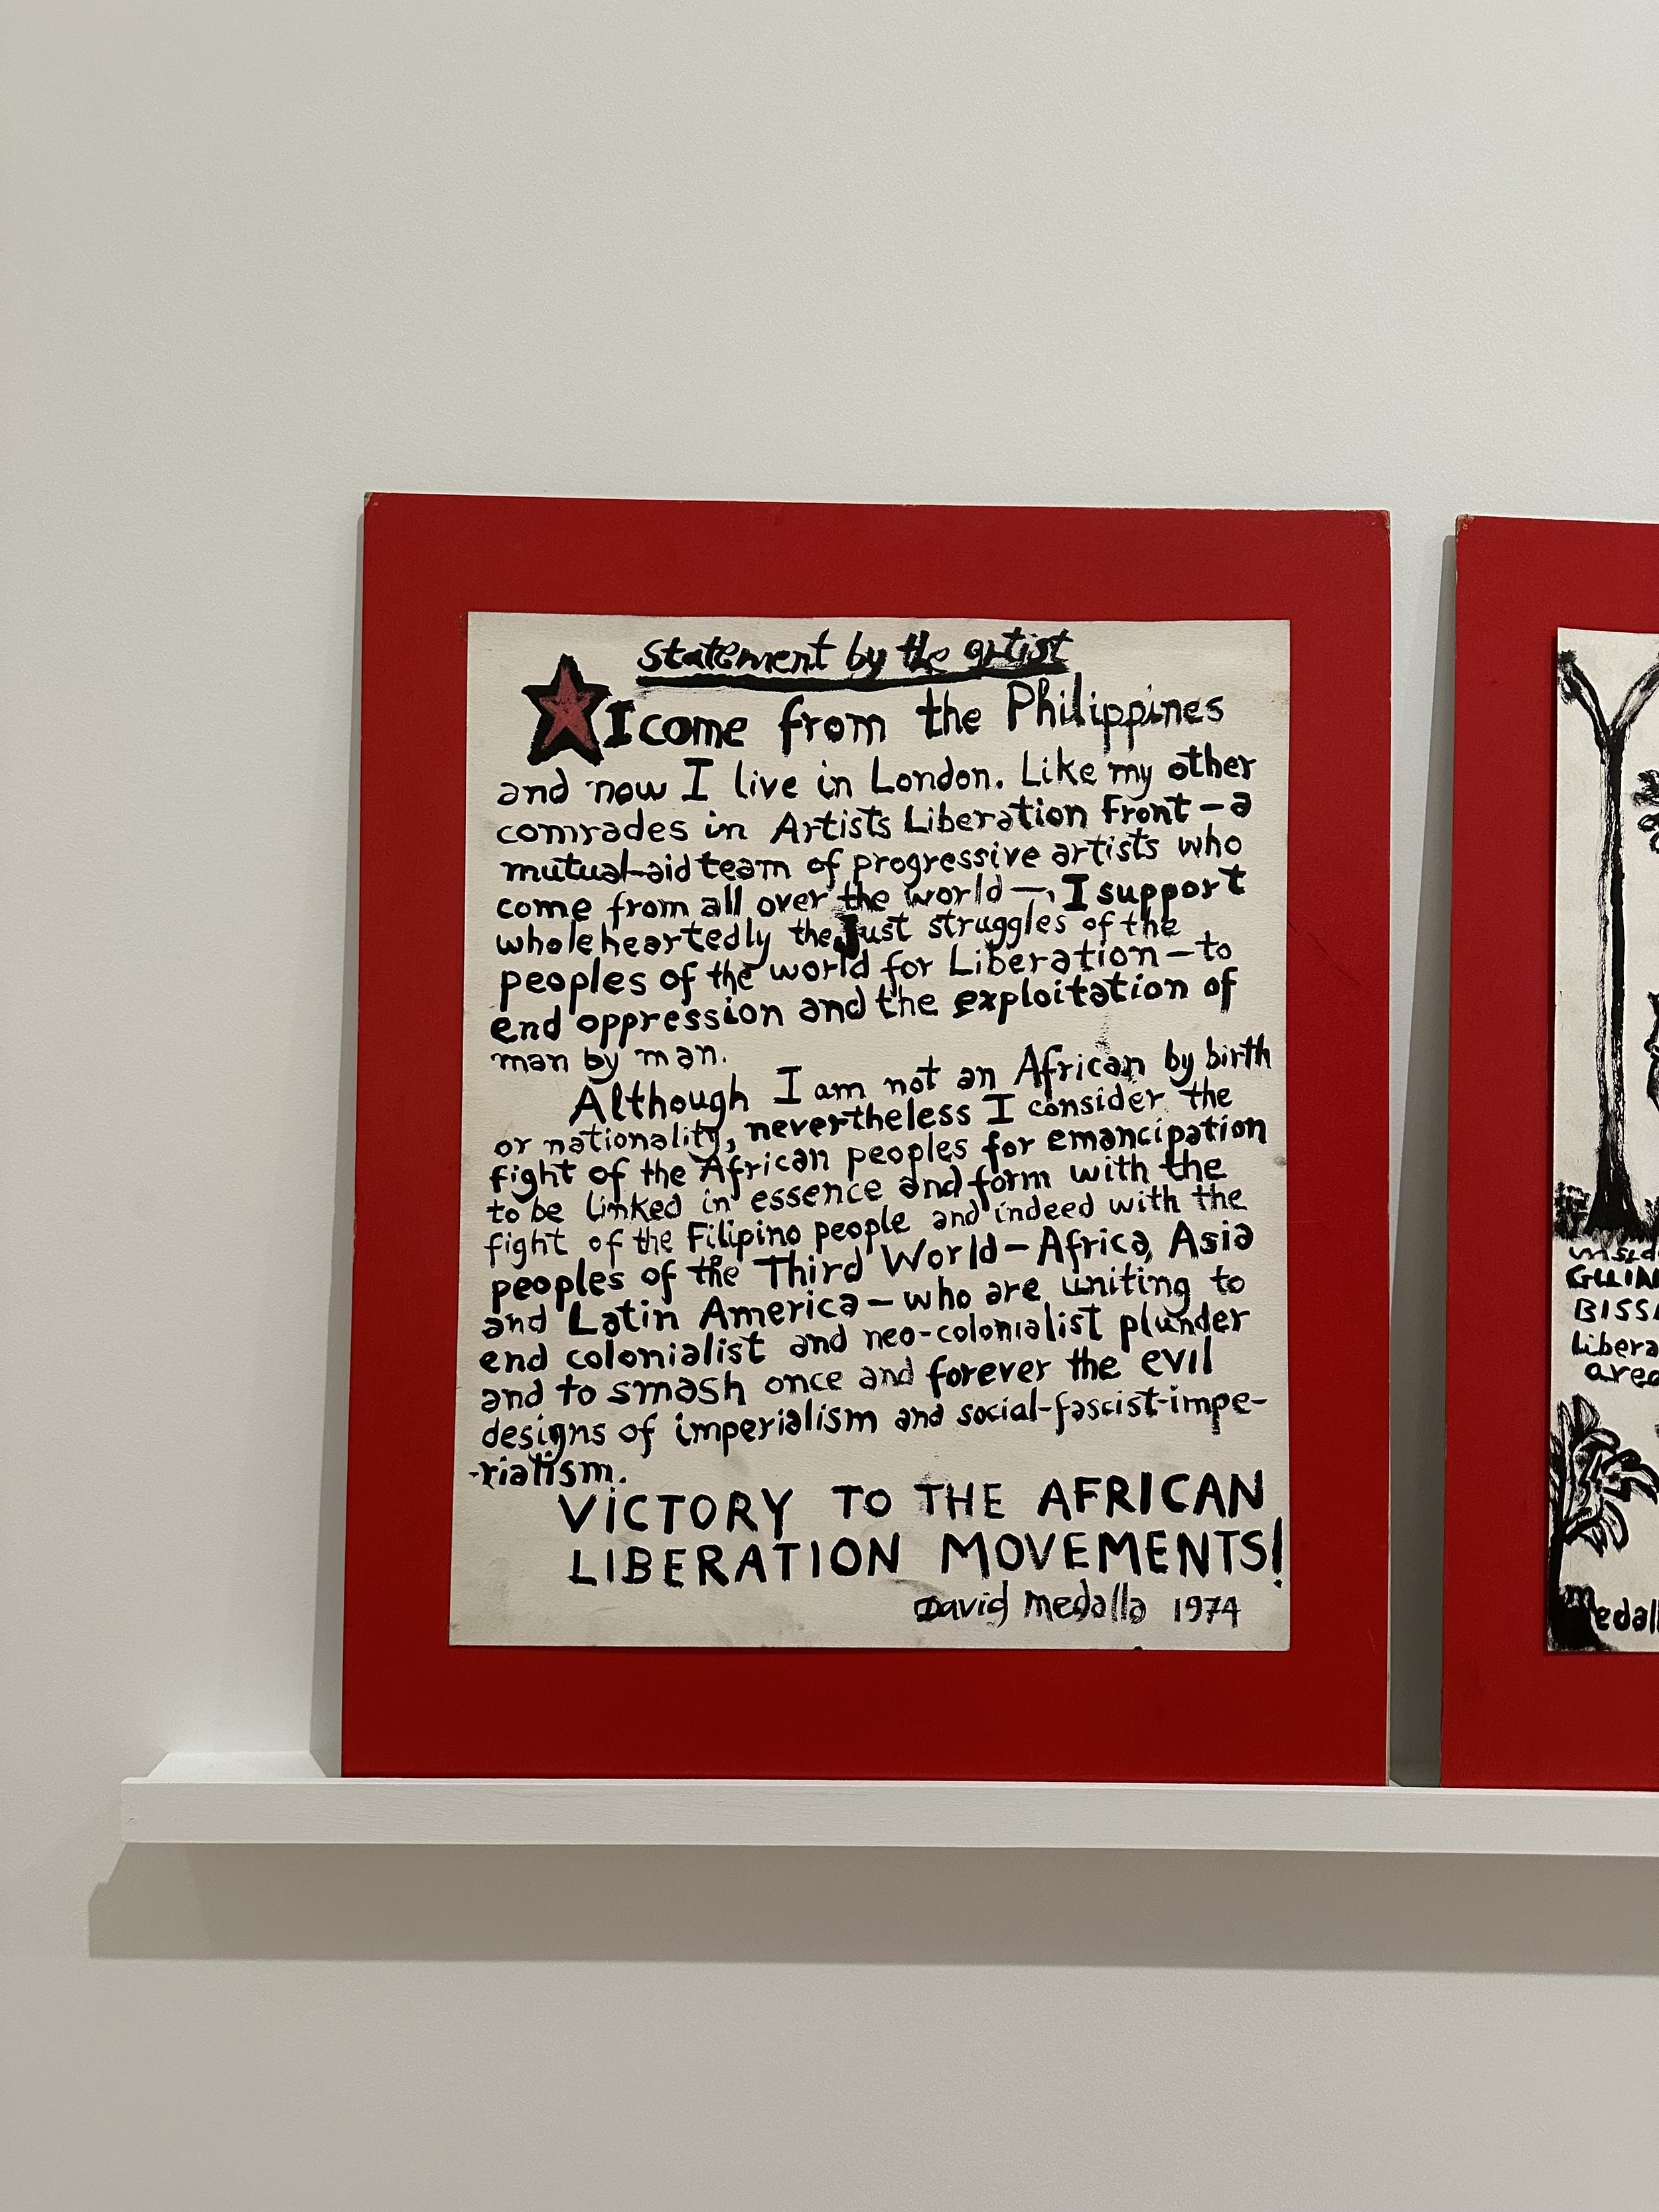 Statement by the artist
I come from the Philippines
and now I live in London. Like my other
comrades in Artists Liberation Front — a
mutual-aid team of progressive artists who
come from all over the world —, I support
wholeheartedly the Just struggles of the
peoples of the world for Liberation — to
end oppression and the exploitation of
man by man.
Although I am not an African by birth
or nationality, nevertheless I consider the
fight of the African peoples for emancipation
to be linked in essence and form with the
fight of the Filipino people and indeed with the
peoples of the Third World — Africa, Asia
and Latin America — who are uniting to
end colonialist and neo-colonialist plunder
and to smash once and forever the evil
designs of imperialism and social-fascist-impe-
-rialism.
VICTORY TO THE AFRICAN
LIBERATION MOVEMENTS!
David Medalla 1974
GUIN
BISS
libera
area
Medall